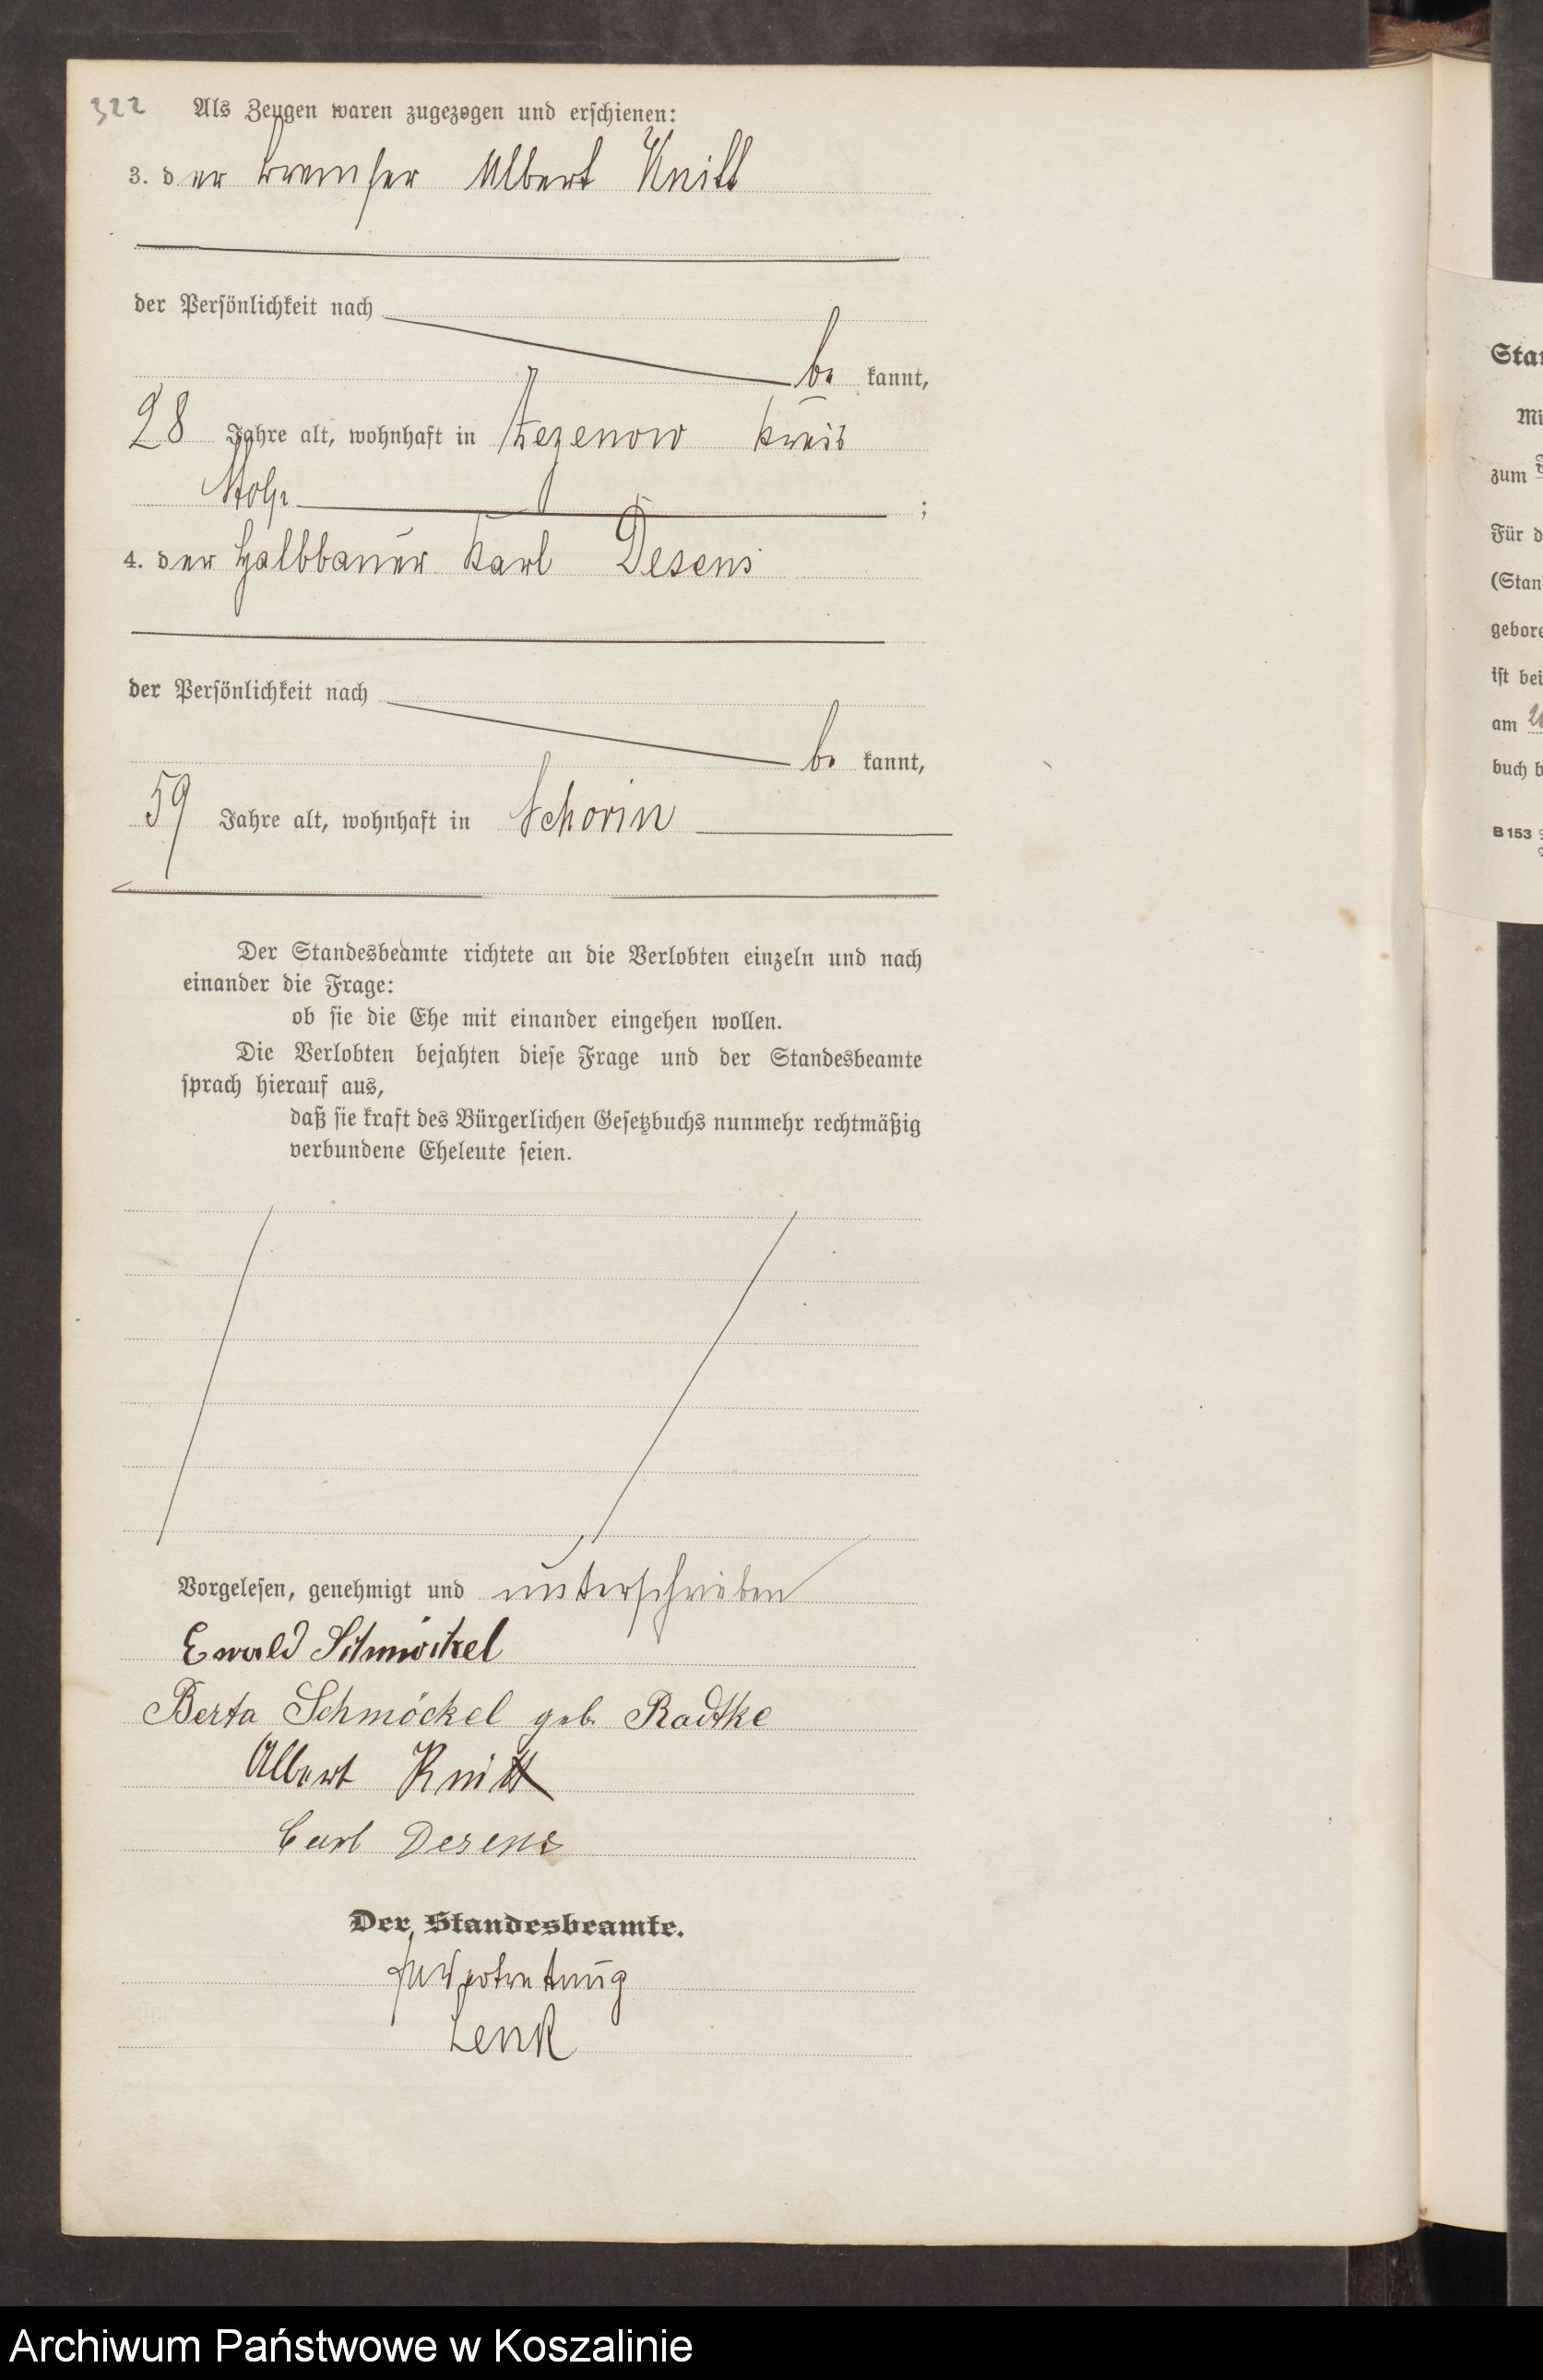 322 Als Zeugen waren zugezogen und erschienen:
3. der Bremser Albert Knitt
der Persönlichkeit nach
be kannt,
28 Jahre alt, wohnhaft in Zezenow Kreis
Stolp ;
4. der Halbbauer Karl Desens
der Persönlichkeit nach
be kannt,
59 Jahre alt, wohnhaft in Schorin
Der Standesbeamte richtete an die Verlobten einzeln und nach
einander die Frage:
ob sie die Ehe mit einander eingehen wollen.
Die Verlobten bejahten diese Frage und der Standesbeamte
sprach hierauf aus,
daß sie kraft des Bürgerlichen Gesetzbuchs nunmehr rechtmäßig
verbundene Eheleute seien.
Vorgelesen, genehmigt und unterschrieben
Ewald Schmöckel
Berta Schmöckel geb. Radtke
Albert Knitt
Carl Desens
Der Standesbeamte.
In Vertretung
Lenk
Stan
Mi
zum
Für d
(Stan
gebore
ist bei
am
buch b
B 153
Archiwum Państwowe w Koszalinie